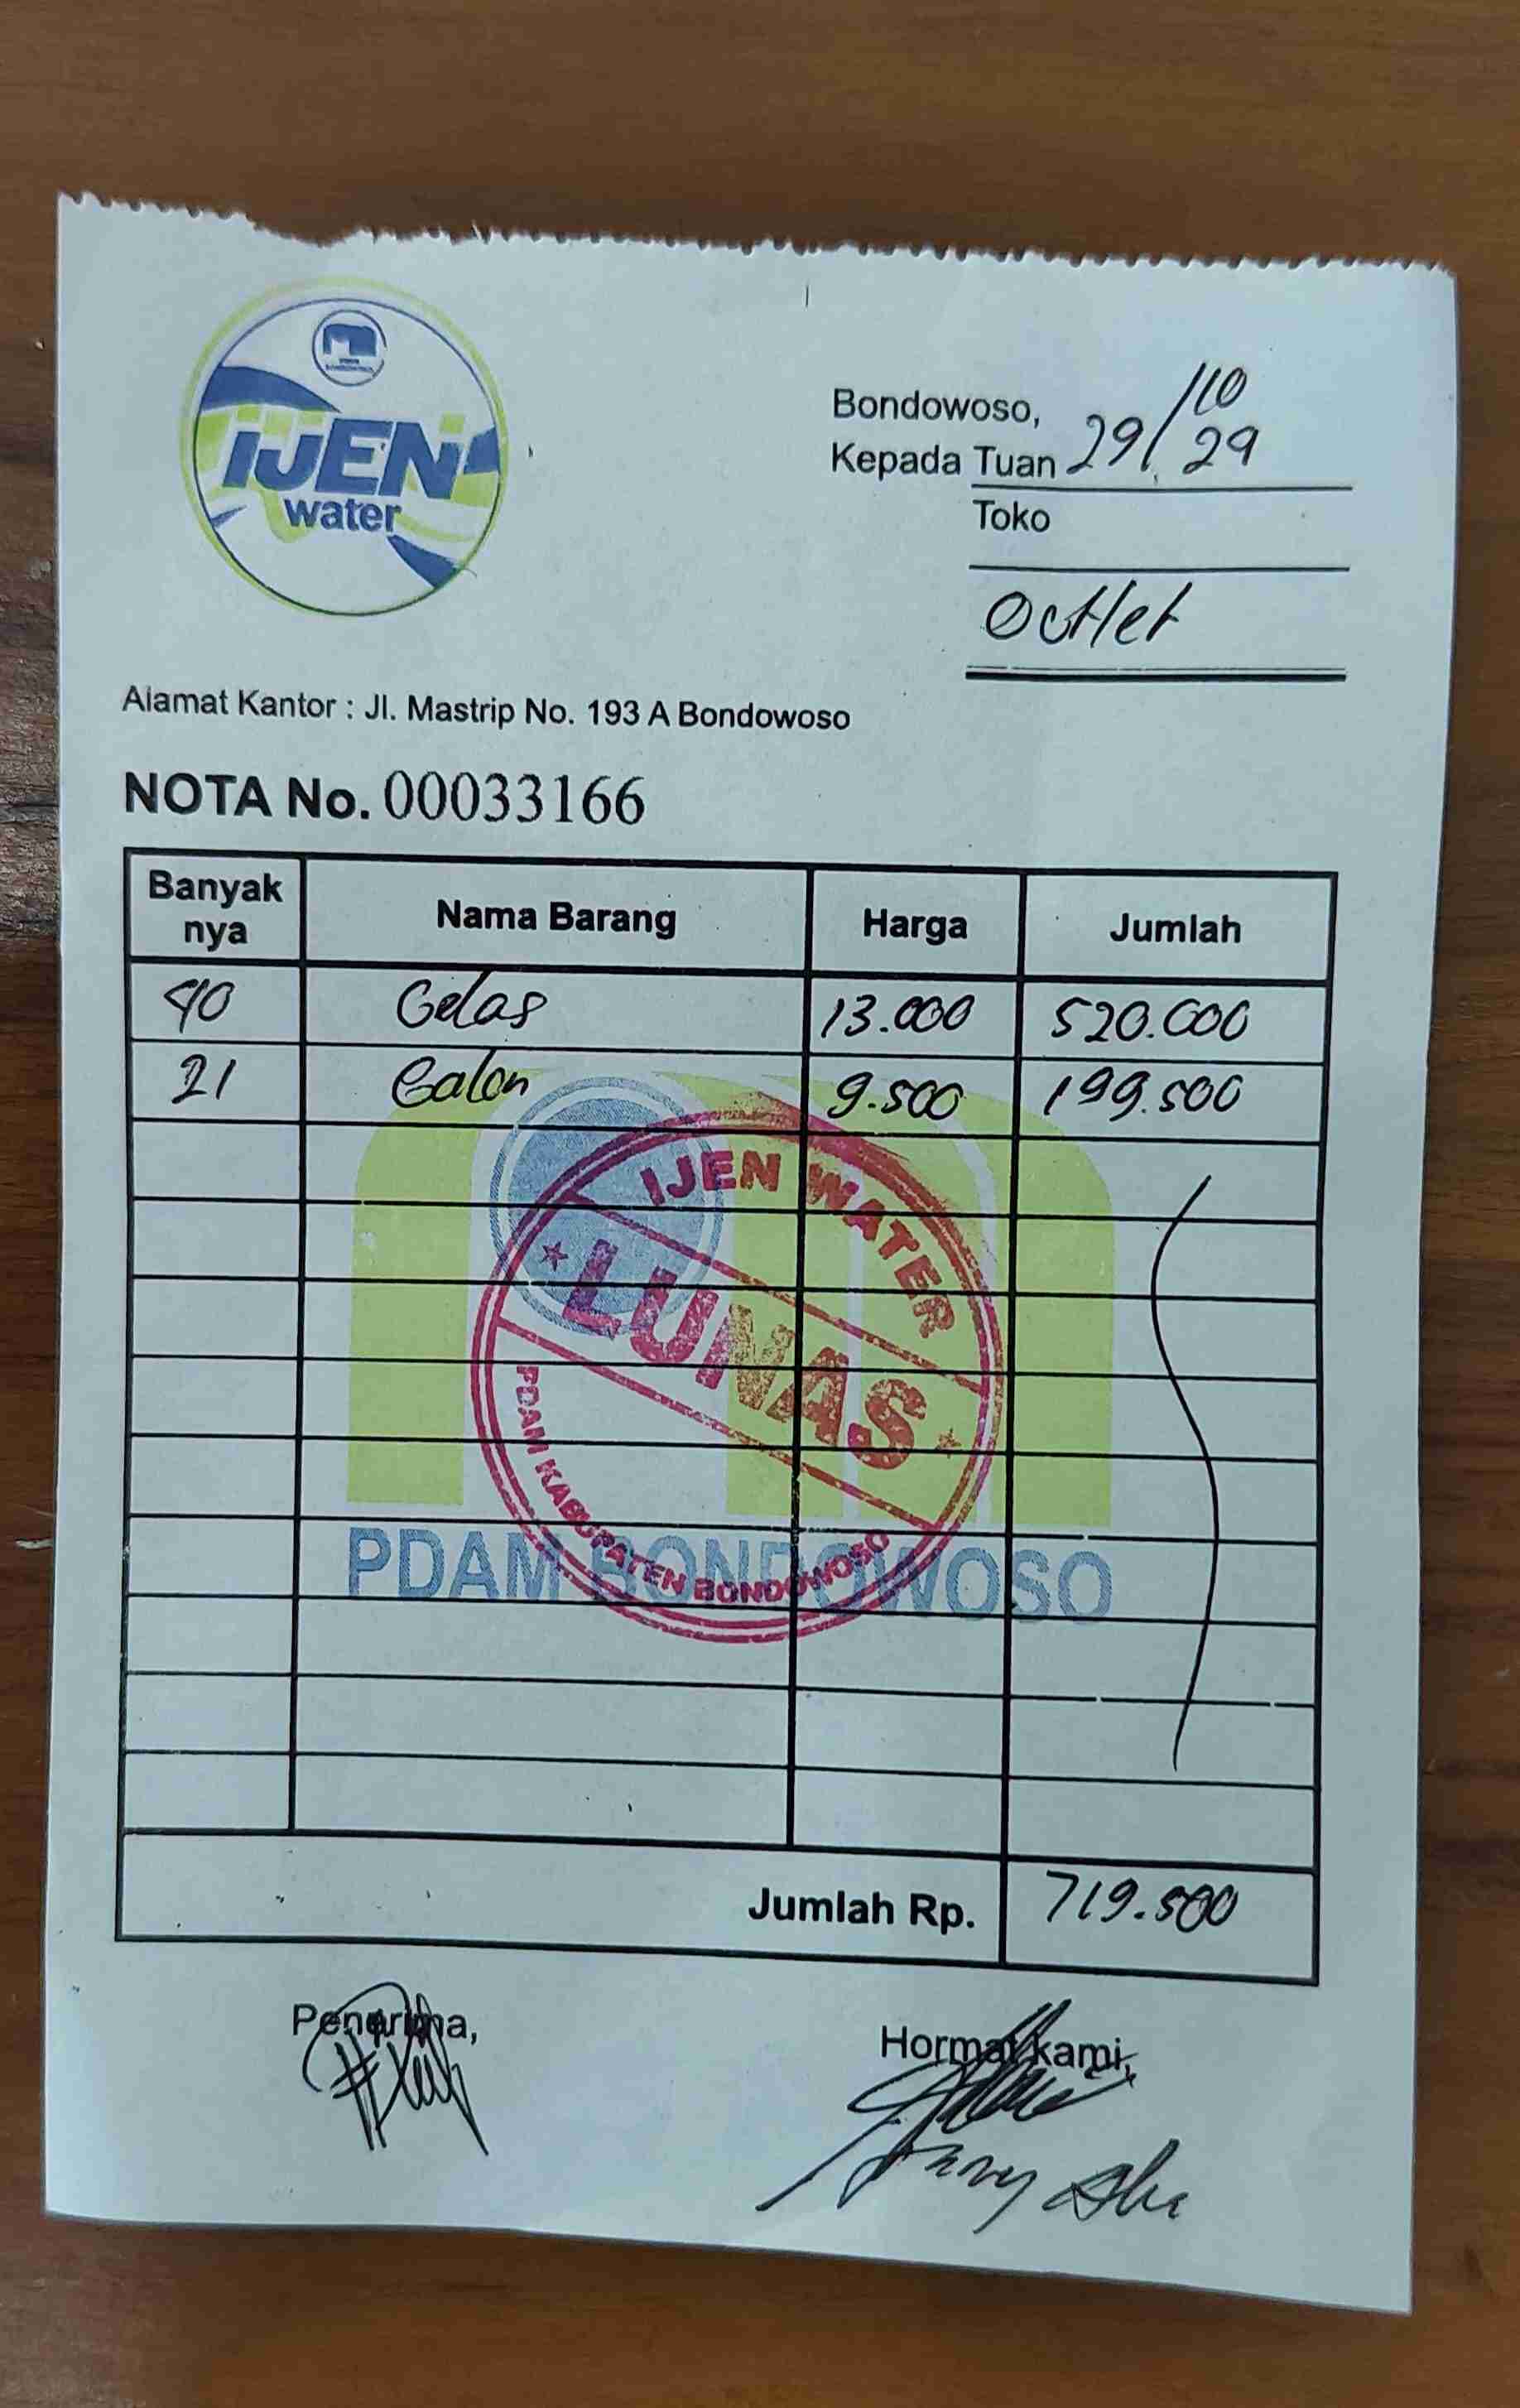 IJEN
water
Bondowoso, 29/10 29
Kepada Tuan
Toko
Outlet
Alamat Kantor : Jl. Mastrip No. 193 A Bondowoso
NOTA No. 00033166
Banyak nya Nama Barang Harga Jumlah
40 Gelas 13.000 520.000
21 Galon 9.500 199.500
IJEN WATER
LUNAS
PDAM KABUPATEN BONDOWOSO
PDAM BONDOWOSO
Jumlah Rp. 719.500
Penerima, Hormat kami,